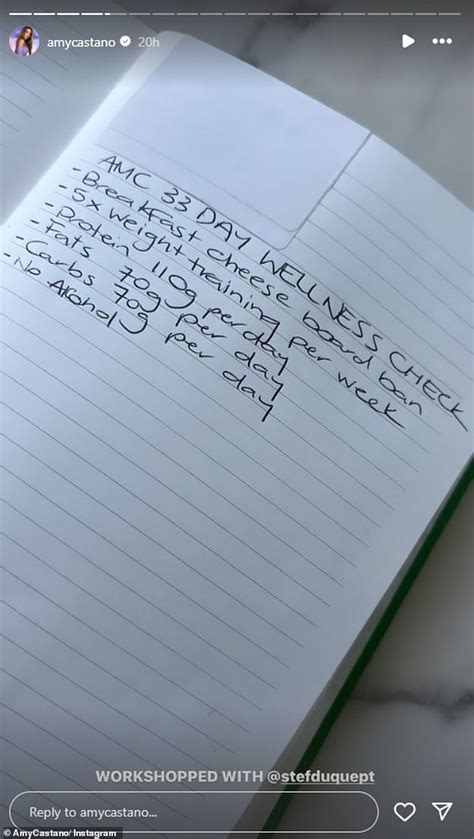 amycastano 20h
AMC 33 DAY WELLNESS CHECK
- Breakfast cheese board ban
- 5x weight training per week
- Protein 110g per day
- Fats 70g per day
- Carbs 70g per day
- No Alcohol
WORKSHOPPED WITH @stefduquept
Reply to amycastano...
© AmyCastano/ Instagram